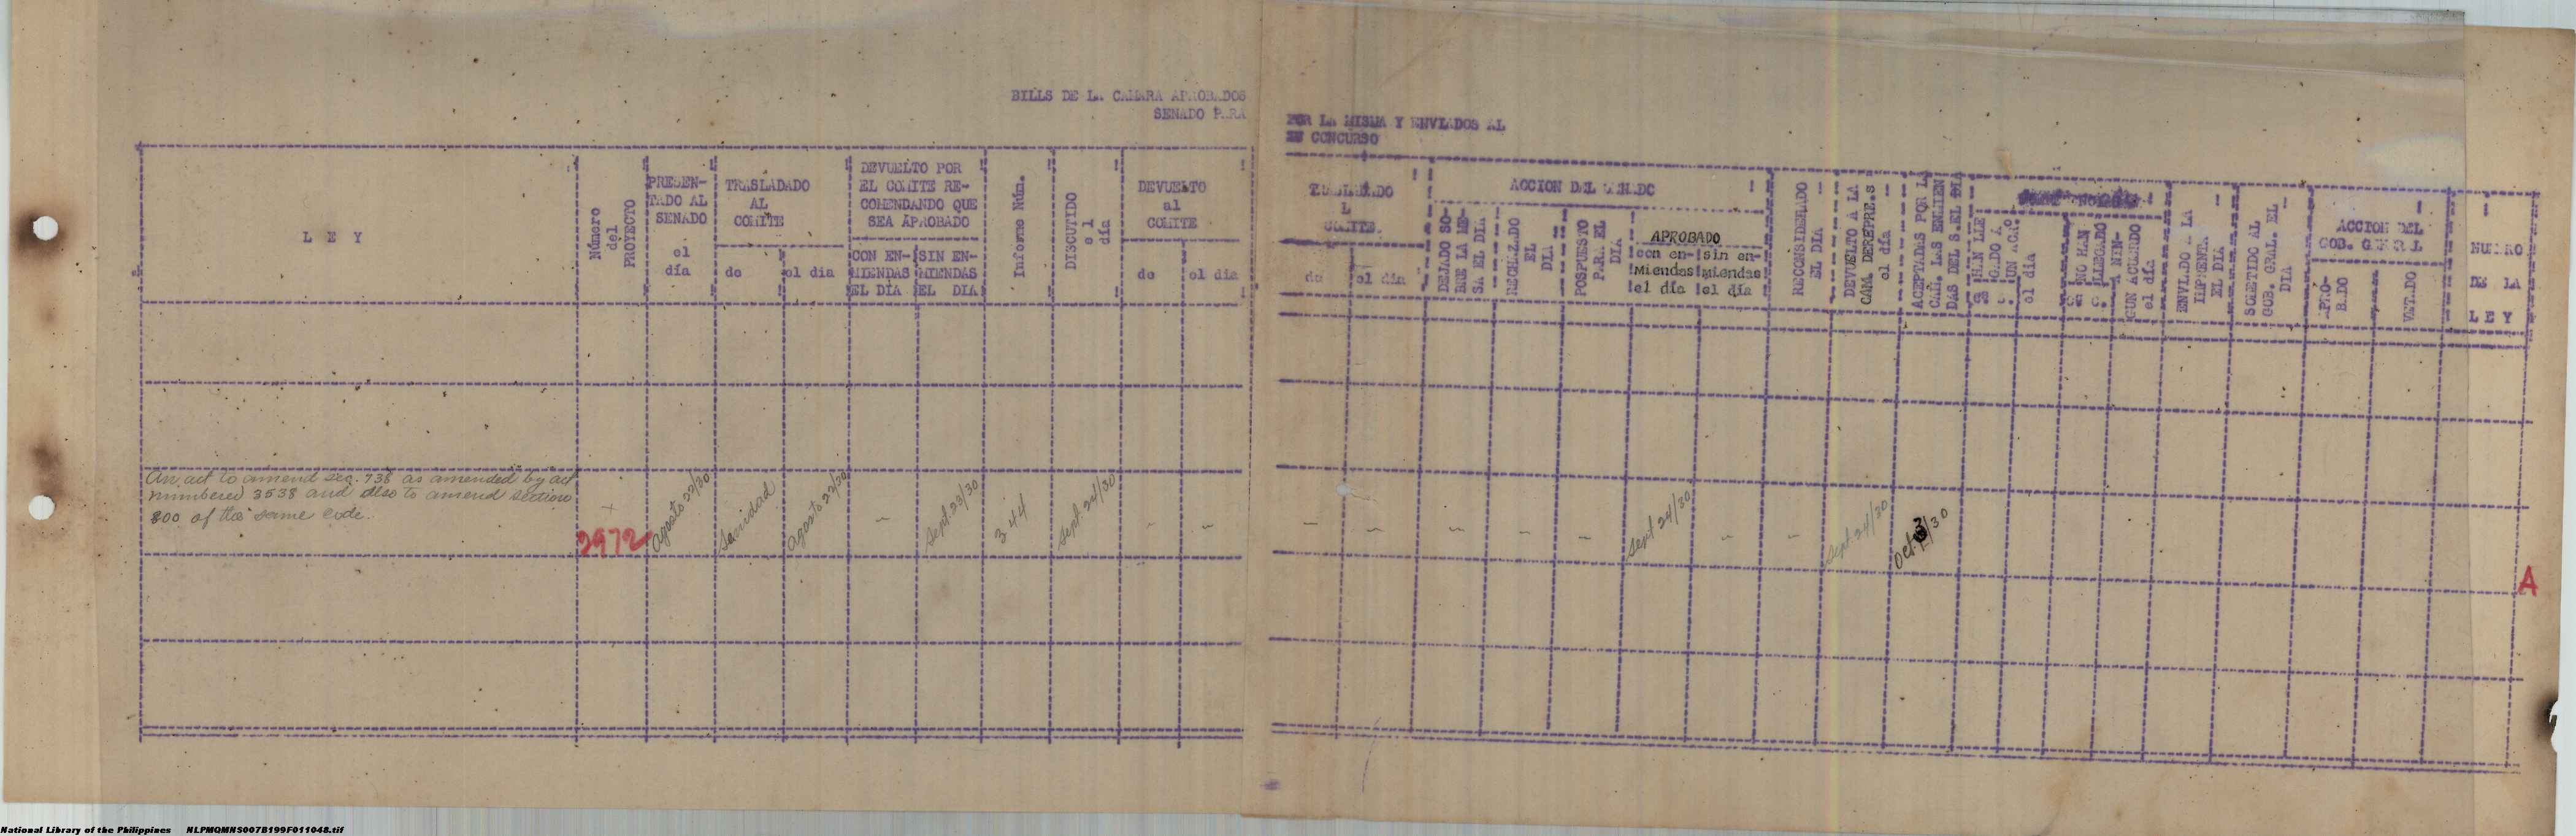 BILLS DE L. CAMARA APROBADOS
SENADO PARA
POR LA MISMA Y ENVIADOS AL
SU CONCURSO
L E Y
Número
del
PROYECTO
PRESEN-
TADO AL
SENADO
el
día
TRASLADADO
AL
COMITE
de
el dia
DEVUELTO POR
EL COMITE RE-
COMENDANDO QUE
SEA APROBADO
CON EN-
MIENDAS
EL DIA
SIN EN-
MIENDAS
EL DIA
Informe Núm.
DISCUTIDO
el
día
DEVUELTO
al
COMITE
de
el dia
TRASLADADO
COMITE
de
el dia
ACCION DEL SENADO
DEJADO SO-
BRE LA ME-
SA EL DIA
RECHAZADO
EL
DIA
POSPUESTO
PARA EL
DIA
APROBADO
con en-
Miendas
el día
sin en-
miendas
el día
RECONSIDERADO
EL DIA
DEVUELTO A LA
CAM. DEREPRE.S
el día
ACEPTADAS POR L
CAM. LAS ENMIEN
DAS DEL S.EL DIA
HAN LLE
GADO A
UN ACDO
el día
NO HAN
LLEGADO
A NIN-
GUN ACUERDO
el día
ENVIADO A LA
IMPRENTA
EL DIA
SOMETIDO AL
GOB. GRAL. EL
DIA
ACCION DEL
GOB. GENERAL
APRO-
BADO
VETADO
NUMERO
DE LA
L E Y
An act to amend sec. 738 as amended by act
numbered 3538 and also to amend section
800 of the same code.
2972
Agosto 22/30
Sanidad
Agosto 22/30
–
Sept. 23/30
344
Sept. 24/30
–
–
–
–
–
–
–
Sept 24/30
–
–
Sept. 24/30
Oct. 3/30
A
National Library of the Philippines NLPMQMNS007B199F011048.tif